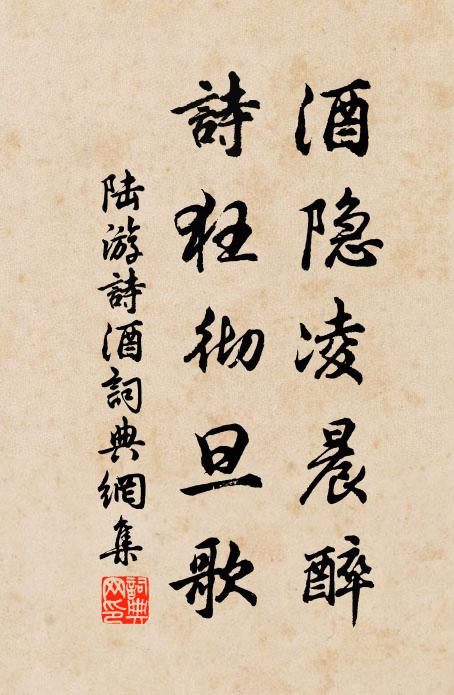 酒隐凌晨醉
詩狂彻旦歌
陆游詩酒詞典網集
詞典网印